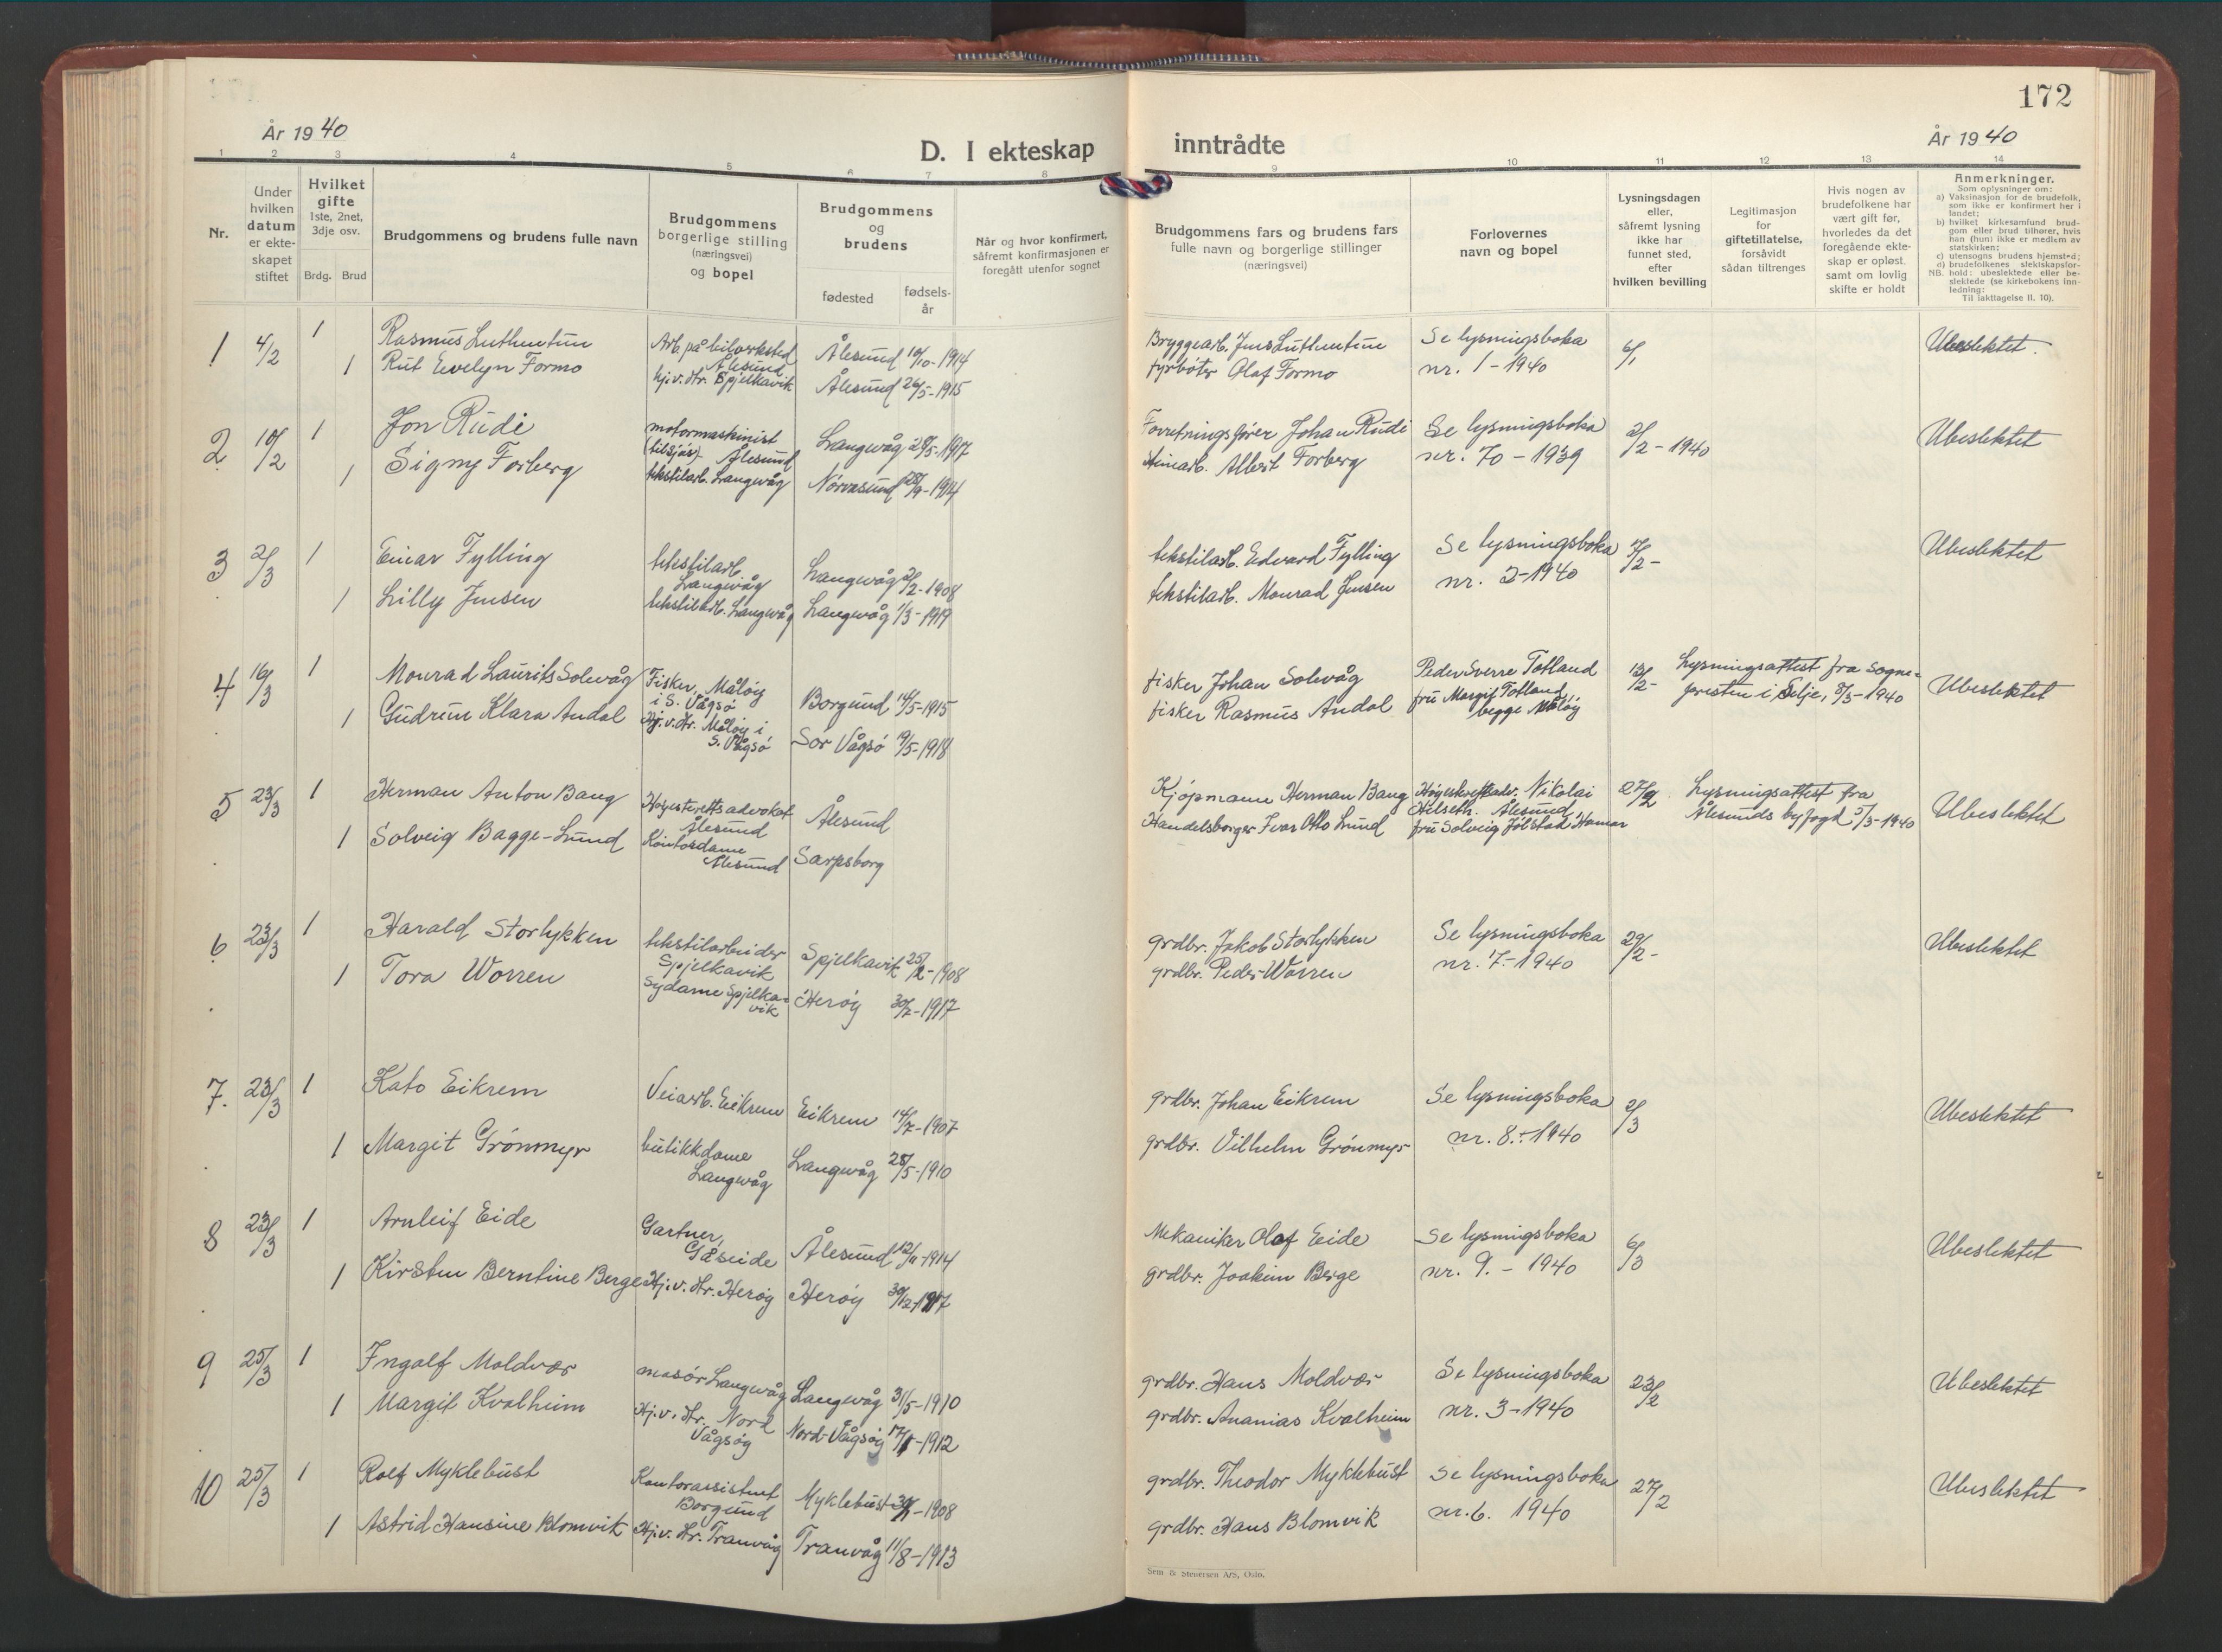 172
År 1940
D. I ekteskap inntrådte
År 1940
1 2 3 4 5 6 7 8 9 10 11 12 13 14
Nr.
Under
hvilken
datum
er ekte-
skapet
stiftet
Hvilket
gifte
1ste, 2net,
3dje osv.
Brdg. Brud
Brudgommens og brudens fulle navn
Brudgommens
borgerlige stilling
(næringsvei)
og bopel
Brudgommens
og
brudens
fødested
fødsels-
år
Når og hvor konfirmert,
såfremt konfirmasjonen er
foregått utenfor sognet
Brudgommens fars og brudens fars
fulle navn og borgerlige stillinger
(næringsvei)
Forlovernes
navn og bopel
Lysningsdagen
eller,
såfremt lysning
ikke har
funnet sted,
efter
hvilken bevilling
Legitimasjon
for
giftetillatelse,
forsåvidt
sådan tiltrenges
Hvis nogen av
brudefolkene har
vært gift før,
hvorledes da det
foregående ekte-
skap er opløst.
samt om lovlig
skifte er holdt
Anmerkninger.
Som oplysninger om:
a) Vaksinasjon for de brudefolk,
som ikke er konfirmert her i
landet;
b) hvilket kirkesamfund brud-
gom eller brud tilhører, hvis
han (hun) ikke er medlem av
statskirken;
c) utensogns brudens hjemsted;
d) brudefolkenes slektskapsfor-
NB. hold: ubeslektede eller be-
slektede (se kirkebokens inn-
ledning:
Til iakttagelse II. 10).
1 4/2 1 Rasmus Luthentun Arb. på bilverksted Ålesund Ålesund 10/10-1914 Bryggearb. Jens Luthentun Se lysningsboka 6/1 Ubeslektet.
1 Rut Evelyn Formo hj.v.hr. Spjelkavik Ålesund 26/5-1915 fyrbøter Olaf Formo nr. 1-1940
2 10/2 1 Jon Rudi motormaskinist (tilsjøs) Ålesund Langevåg 28/5-1917 Forretningsfører Johan Rudi Se lysningsboka 2/2-1940 Ubeslektet
1 Signy Forberg tekstilarb. Langevåg Nørvasund 28/9-1914 Steinarb. Albert Forberg nr. 70-1939
3 2/3 1 Einar Fylling tekstilarb. Langevåg Langevåg 2/2-1908 tekstilarb. Edvard Fylling Se lysningsboka 7/2- Ubeslektet
1 Lilly Jensen tekstilarb. Langevåg Langevåg 1/3-1919 tekstilarb. Monrad Jensen nr. 2-1940
4 16/3 1 Monrad Laurits Solevåg Fisker, Måløy i S. Vågsø Borgund 14/5-1915 fisker Johan Solevåg Peder Sverre Totland 13/2- Lysningsattest fra sogne- Ubeslektet
1 Gudrun Klara Andal Hj.v.hr. Måløy i S. Vågsø Sør Vågsø 19/5-1918 fisker Rasmus Andal fru Margit Totland begge Måløy presten i Selje, 5/3-1940
5 23/3 1 Herman Anton Bang Høyesterettsadvokat Ålesund Ålesund Kjøpmann Herman Bang Høyesterettsadv. Nikolai Helseth. Ålesund 27/2 Lysningsattest fra Ubeslektet
1 Solveig Bagge-Lund Kontordame Ålesund Sarpsborg Handelsborger Ivar Otto Lund fru Solveig Jølstad Hamar Ålesunds byfogd 5/3-1940
6 23/3 1 Harald Storlykken tekstilarbeider Spjelkavik Spjelkavik 25/2-1908 grdbr. Jakob Storlykken Se lysningsboka 29/2- Ubeslektet
1 Tora Worren Sydame Spjelka-vik Herøy 30/7-1917 grdbr. Peder Worren nr. 7.-1940
7. 23/3 1 Kato Eikrem Veiarb. Eikrem Eikrem 14/7-1907 grdbr. Johan Eikrem Se lysningsboka 2/3 Ubeslektet
1 Margit Grønmyr butikkdame Langevåg Langevåg 28/5-1910 grdbr. Vilhelm Grønmyr nr. 8.-1940
8 23/3 1 Arnleif Eide Gartner, Gåseide Ålesund 12/11-1914 Mekaniker Olaf Eide Se lysningsboka 6/3 Ubeslektet
1 Kirsten Berntine Berge Hj.v.hr. Herøy Herøy 30/12-1917 grdbr. Joakim Berge nr. 9.-1940
9 25/3 1 Ingolf Moldvær masør Langevåg Langevåg 31/5-1910 grdbr. Hans Moldvær Se lysningsboka 23/2 Ubeslektet
1 Margit Kvalheim Hj.v.hr. Nord Vågsøy Nord-Vågsøy 17/1-1912 grdbr. Ananias Kvalheim nr. 3-1940
10 25/3 1 Rolf Myklebust Kontorassistent Borgund Myklebust 1908 grdbr. Theodor Myklebust Se lysningsboka 27/2 Ubeslektet
1 Astrid Hansine Blomvik Hj.v.hr. Tranvåg Tranvåg 11/8-1913 grdbr. Hans Blomvik nr. 6. 1940
Sem & Stenersen A/S, Oslo.